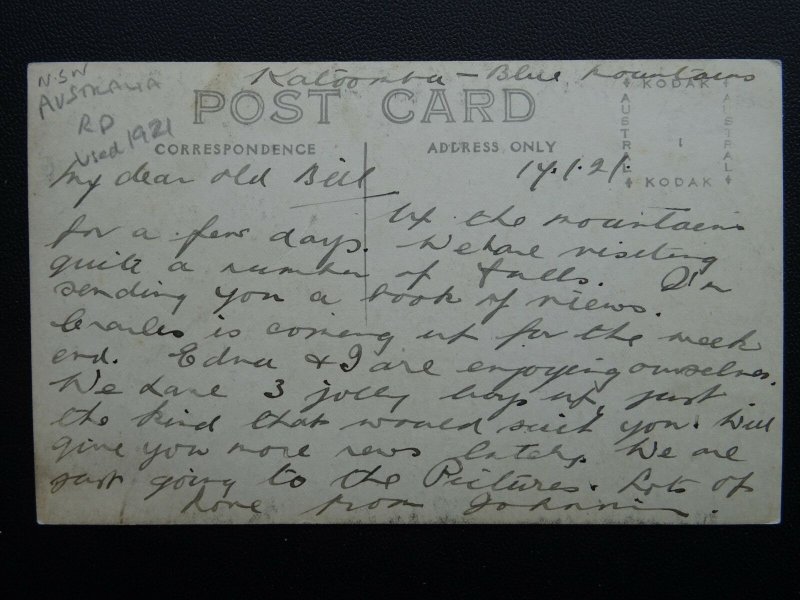 N.S.W
AUSTRALIA
R.P
Used 1921
Katoomba - Blue Mountains
POST CARD
CORRESPONDENCE
ADDRESS ONLY
KODAK
AUSTRAL
AUSTRAL
KODAK
My dear old Bill
17.1.21.
Up the mountains
for a few days. We are visiting
quite a number of falls. I'm
sending you a book of views.
Charles is coming up for the week
end. Edna & I are enjoying ourselves.
We have 3 jolly boys up, just
the kind that would suit you. Will
give you more news later. We are
just going to the Pictures. Lots of
love from Johnnie.